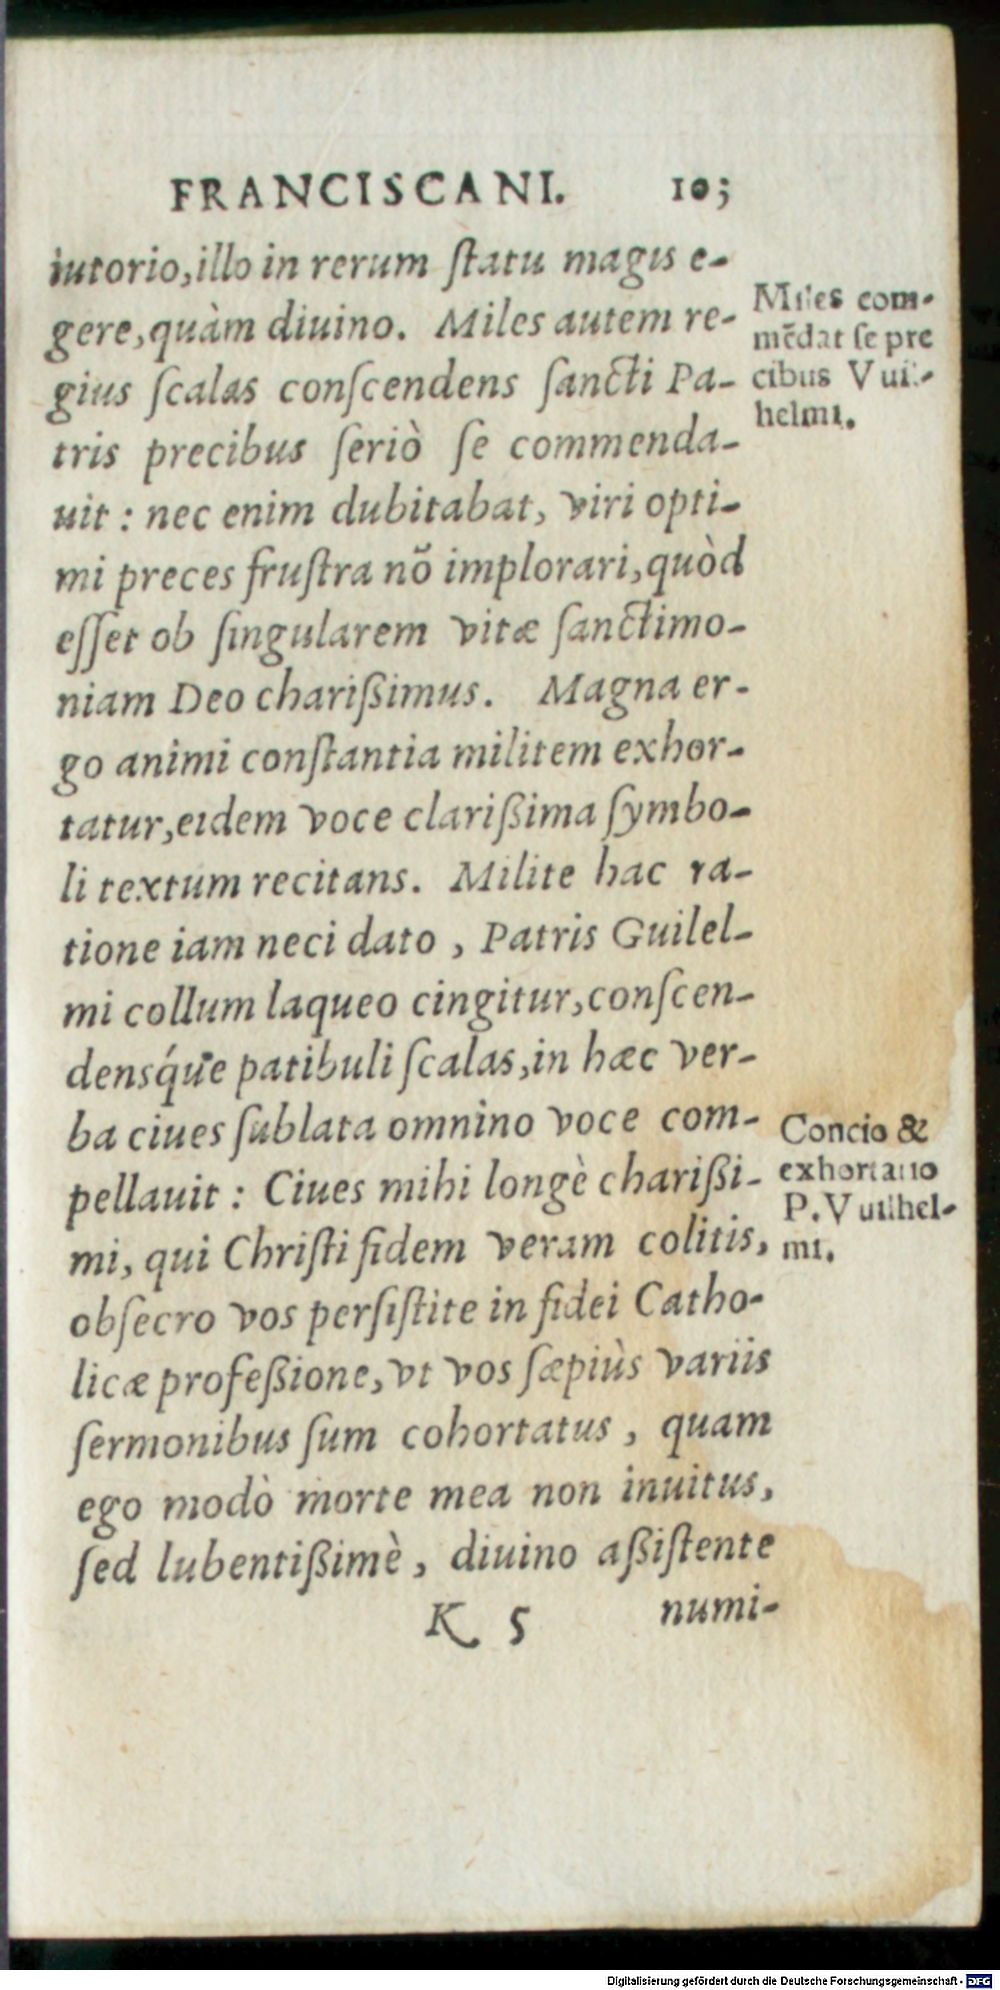 FRANCISCANI. 105
iutorio, illo in rerum ſtatu magis e-
gere, quàm diuino. Miles autem re-
gius ſcalas conſcendens ſancti Pa-
tris precibus ſeriò ſe commenda-
uit : nec enim dubitabat, viri opti-
mi preces fruſtra nō implorari, quòd
eſſet ob ſingularem vitæ ſanctimo-
niam Deo charißimus. Magna er-
go animi conſtantia militem exhor-
tatur, eidem voce clarißima ſymbo-
li textum recitans. Milite hac ra-
tione iam neci dato , Patris Guilel-
mi collum laqueo cingitur, conſcen-
densq́ue patibuli ſcalas, in hæc ver-
ba ciues ſublata omnino voce com-
pellauit : Ciues mihi longè charißi-
mi, qui Chriſti fidem veram colitis,
obſecro vos perſiſtite in fidei Catho-
licæ profeßione, vt vos ſæpiùs variis
ſermonibus ſum cohortatus , quam
ego modò morte mea non inuitus,
ſed lubentißimè , diuino aßiſtente
K 5 numi-
Miles com-
mēdat ſe pre
cibus Vuil-
helmi.
Concio &
exhortatio
P. Vuilhel-
mi.
Digitalisierung gefördert durch die Deutsche Forschungsgemeinschaft - DFG